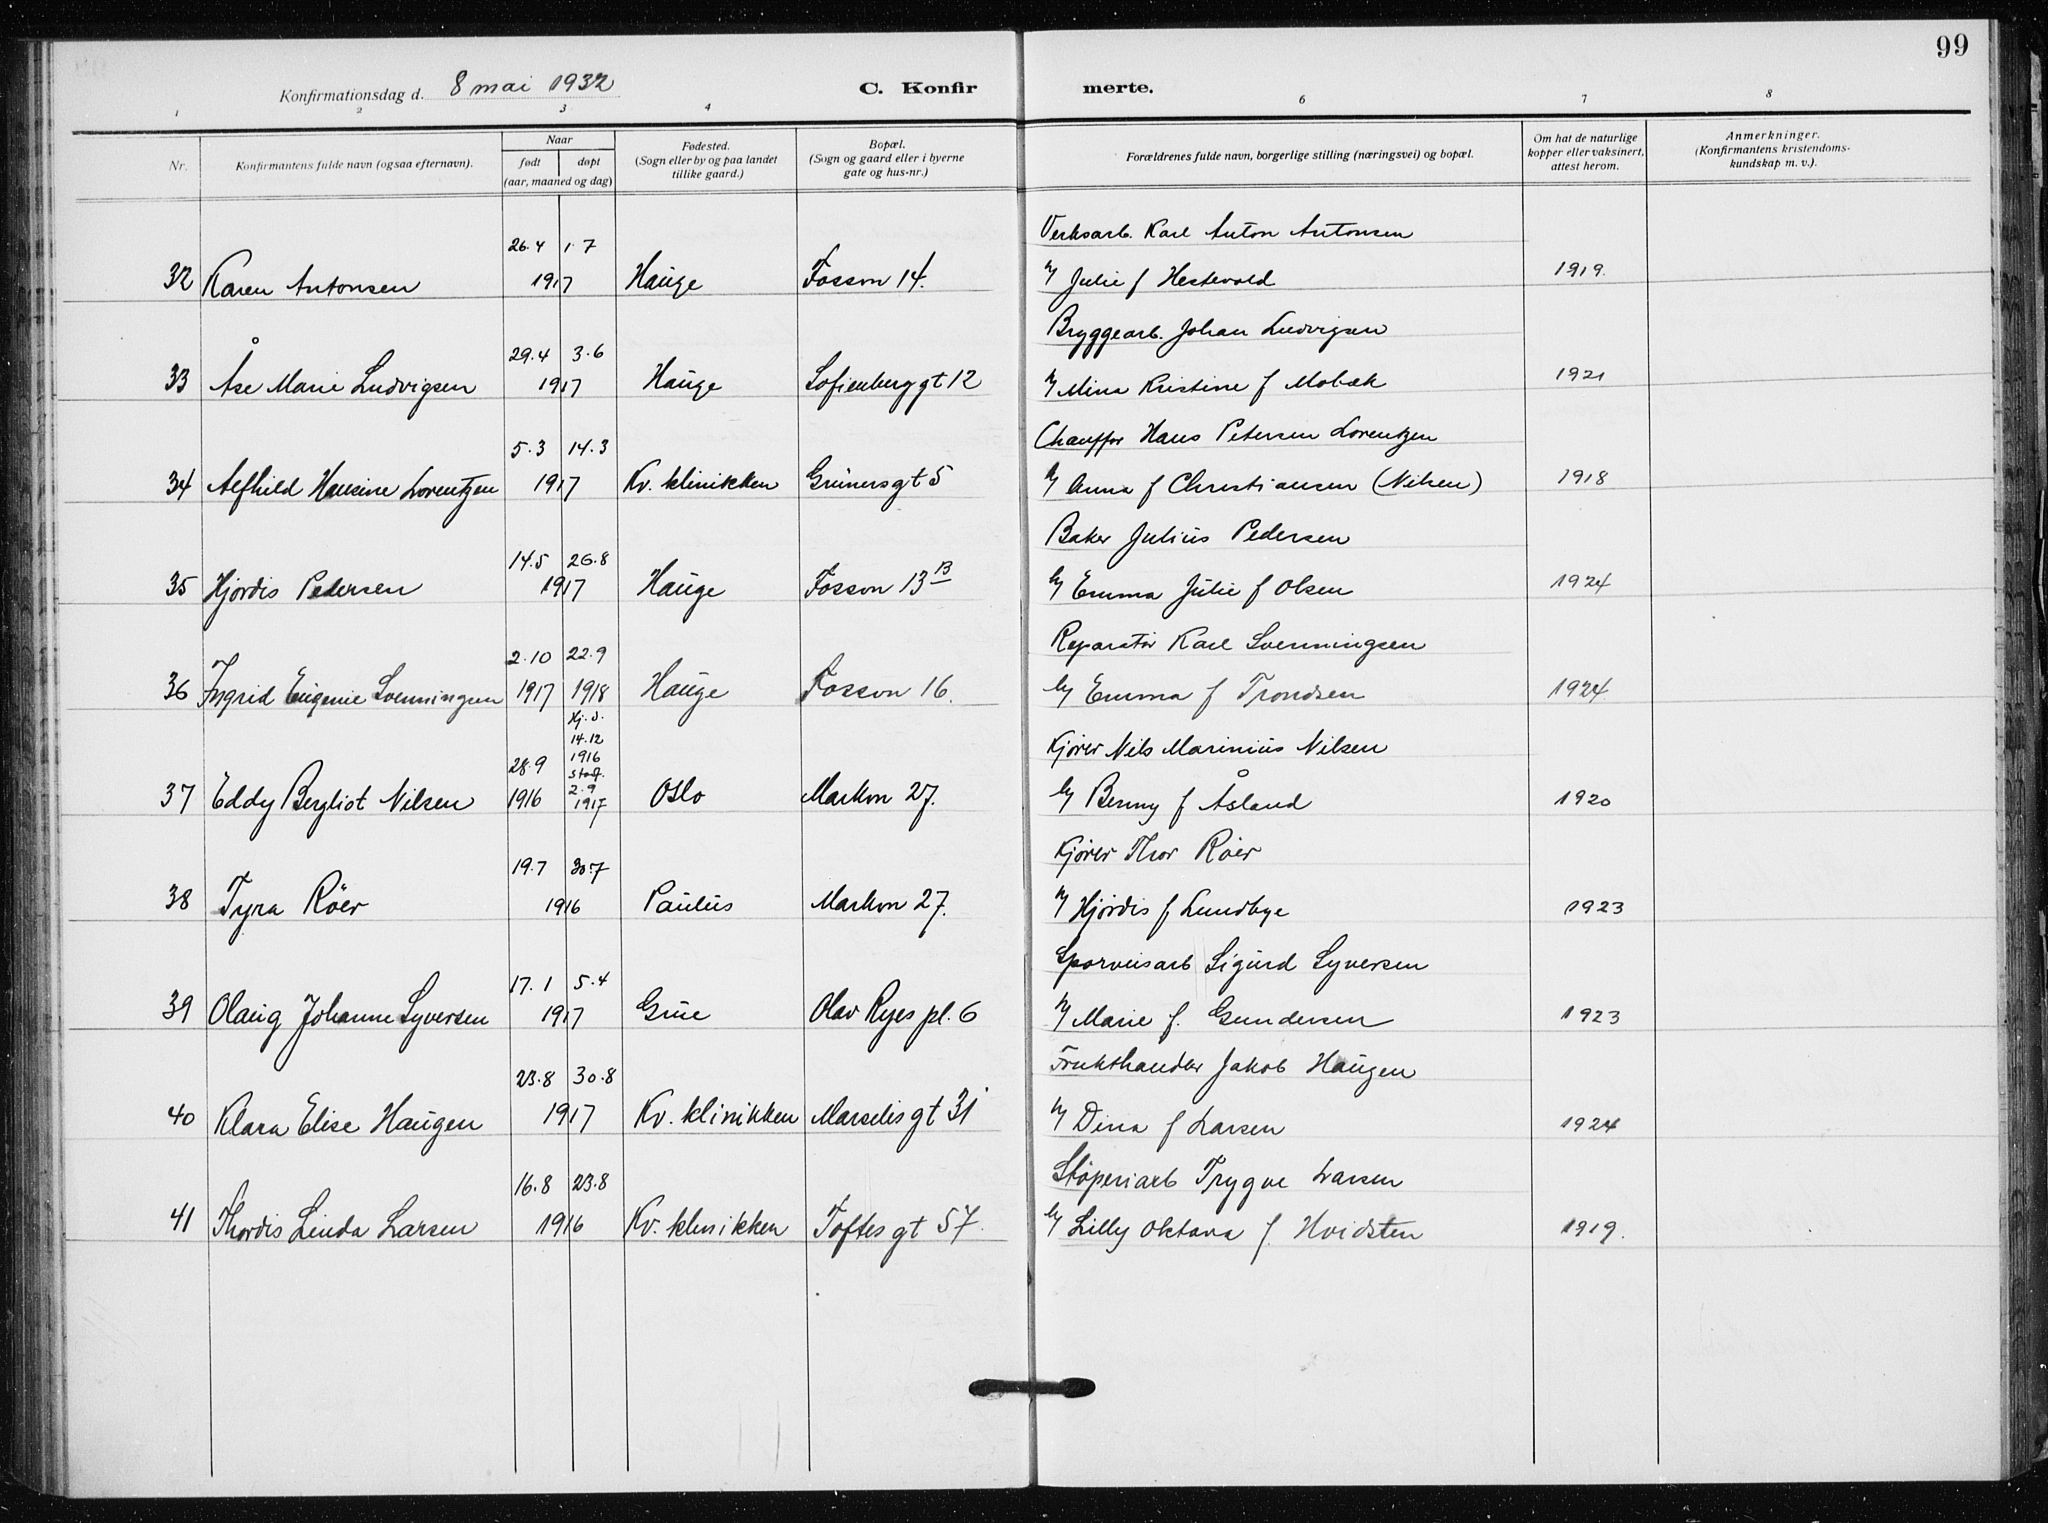 99
Konfirmationsdag d. 8 mai 1932
C. Konfirmerte.
1 2 3 4 6 7 8
Nr. | Konfirmantens fulde navn (ogsaa efternavn). | Naar født døpt (aar, maaned og dag) | Fødested. (Sogn eller by og paa landet tillike gaard.) | Bopæl. (Sogn og gaard eller i byerne gate og hus-nr.) | Forældrenes fulde navn, borgerlige stilling (næringsvei) og bopæl. | Om hat de naturlige kopper eller vaksinert, attest herom. | Anmerkninger. (Konfirmantens kristendomskundskap m. v.).
26.4 1.7 Verksarb. Karl Anton Antonsen
32 Karen Antonsen 1917 Hauge Fossvn 14. Julie f Hestevold 1919.
29.4 3.6 Bryggearb. Johan Ludvigsen
33 Åse Marie Ludvigsen 1917 Hauge Sofienberggt 12 Mina Kristine f Mobæk 1921
5.3 14.3 Chauffør Hans Petersen Lorentzen
34 Alfhild Hansine Lorentzen 1917 Kv. klinikken Grünersgt 5 Anna f Christiansen (Nilsen) 1918
14.5 26.8 Baker Julius Pedersen
35 Hjørdis Pedersen 1917 Hauge Fossvn 13 B Emma Julie f Olsen 1924
2.10 22.9 Reparatør Karl Svenningsen
36 Ingrid Eugenie Svenningsen 1917 1918 Hauge Fossvn 16. Emma f Trondsen 1924.
28.9 Hj.d. 14.12 1916 stadf. 2.9 1917 Kjører Nils Marinius Nilsen
37 Eddy Bergliot Nilsen 1916 Oslo Markvn 27. Benny f Åsland 1920
19.7 30.7 Kjører Thor Röer
38 Tyra Röer 1916 Paulus Markvn 27. Hjørdis f Lundbye 1923
17.1 5.4 Sporveisarb Sigurd Syversen
39 Olaug Johanne Syversen 1917 Grue Olav Ryes pl. 6 Marie f. Gundersen 1923
23.8 30.8 Frukthandler Jakob Haugen
40 Klara Elise Haugen 1917 Kv. klinikken Marselisgt 31 Dina f Larsen 1924
16.8 23.8 Støperiarb Trygve Larsen
41 Thordis Linda Larsen 1916 Kv. klinikken Toftesgt 57. Lilly Oktava f. Hvidsten 1919.